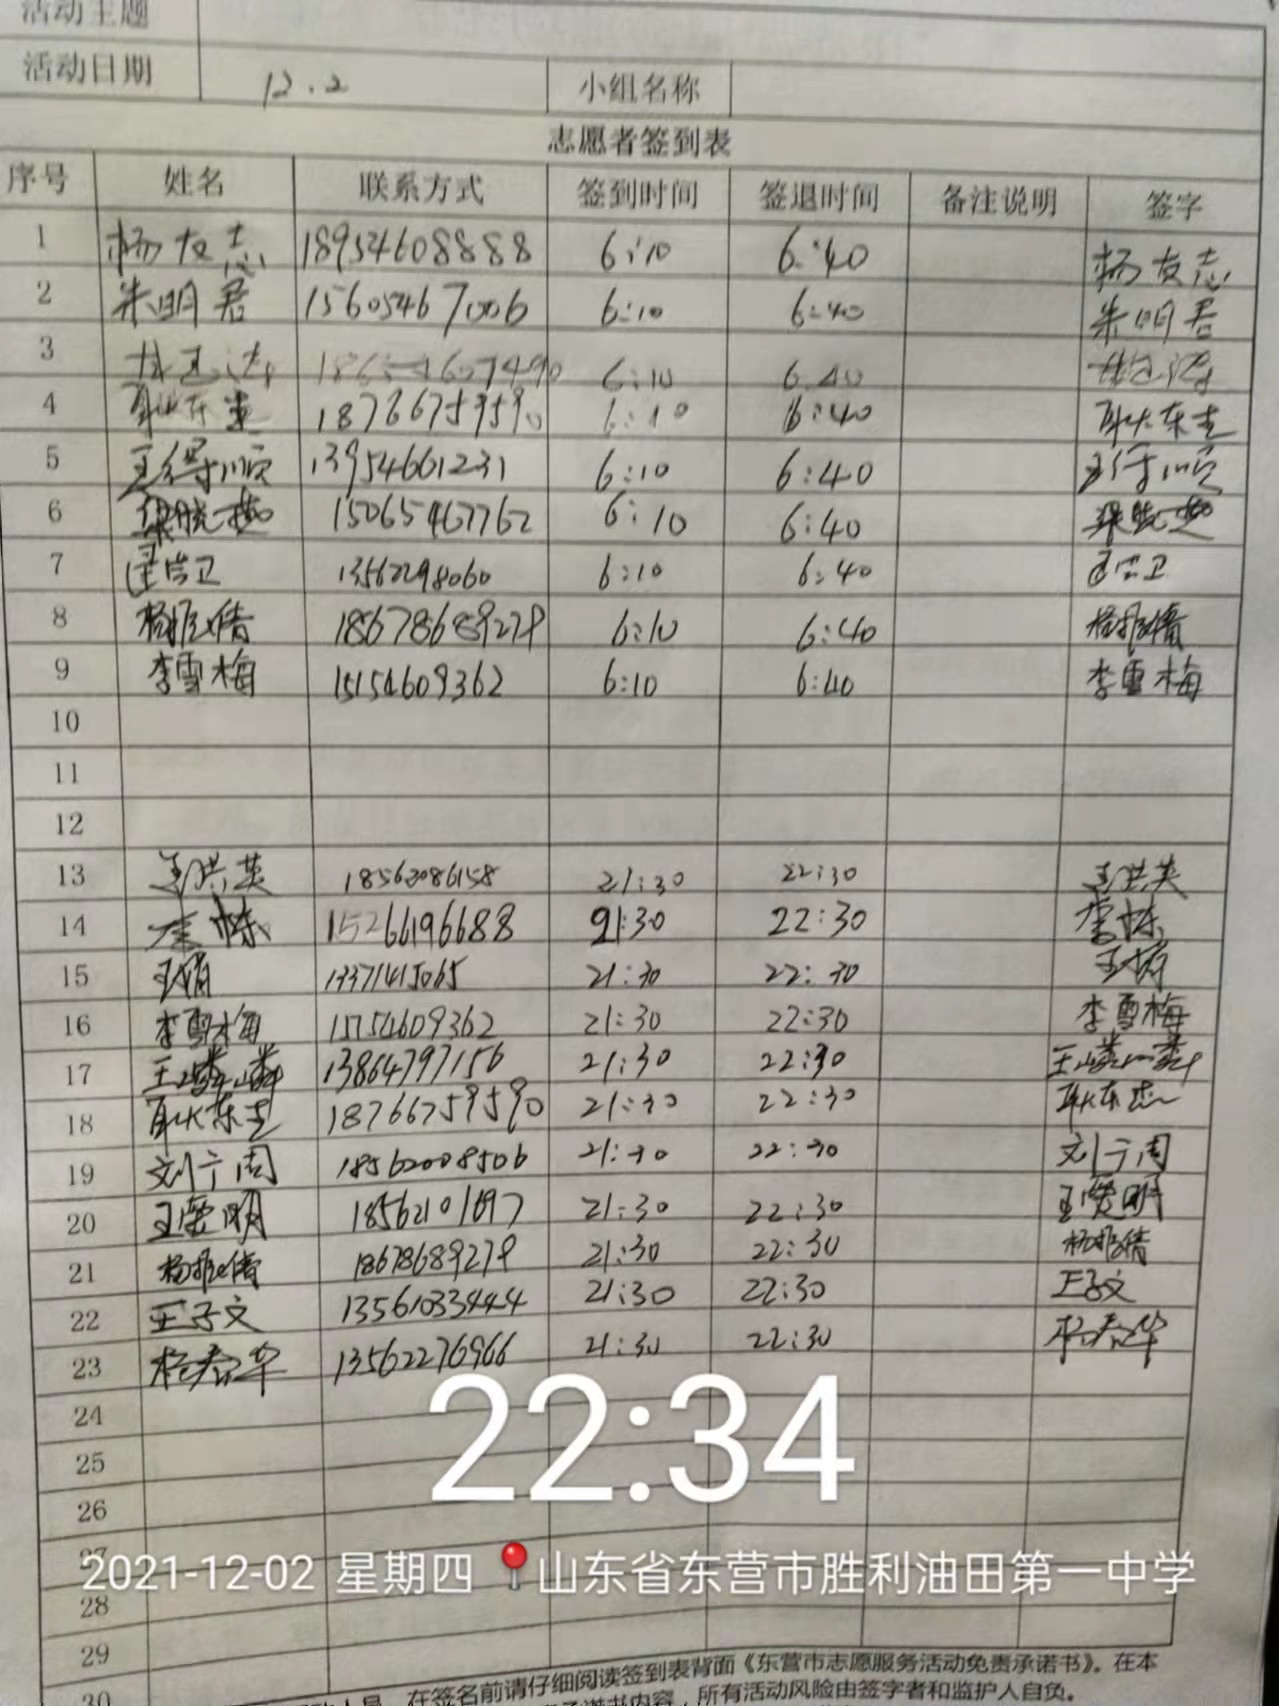 活动主题
活动日期 12.2 小组名称
志愿者签到表
序号 姓名 联系方式 签到时间 签退时间 备注说明 签字
1 杨友志 18954608888 6:10 6:40 杨友志
2 朱明君 15605467006 6:10 6:40 朱明君
3 6:10 6:40
4 耿东志 18766759590 6:10 6:40 耿东志
5 王得顺 13954661231 6:10 6:40 王得顺
6 梁晓艳 15065467762 6:10 6:40 梁晓艳
7 13562298060 6:10 6:40
8 杨振倩 18678689279 6:10 6:40 杨振倩
9 李雪梅 15154609362 6:10 6:40 李雪梅
10
11
12
13 王洪英 18562086158 21:30 22:30 王洪英
14 李栋 15266196688 21:30 22:30 李栋
15 王娟 13371415065 21:30 22:30 王娟
16 李雪梅 15154609362 21:30 22:30 李雪梅
17 王嶙嶙 13864797156 21:30 22:30 王嶙嶙
18 耿东志 18766759590 21:30 22:30 耿东志
19 刘广周 18562008506 21:30 22:30 刘广周
20 王爱明 18562101697 21:30 22:30 王爱明
21 杨振倩 18678689279 21:30 22:30 杨振倩
22 王子文 13561033444 21:30 22:30 王子文
23 杨春华 13562276966 21:30 22:30 杨春华
24
22:34
25
26
27
2021-12-02 星期四 山东省东营市胜利油田第一中学
28
29
30
在签名前请仔细阅读签到表背面《东营市志愿服务活动免责承诺书》。在本
承诺书内容，所有活动风险由签字者和监护人自负。